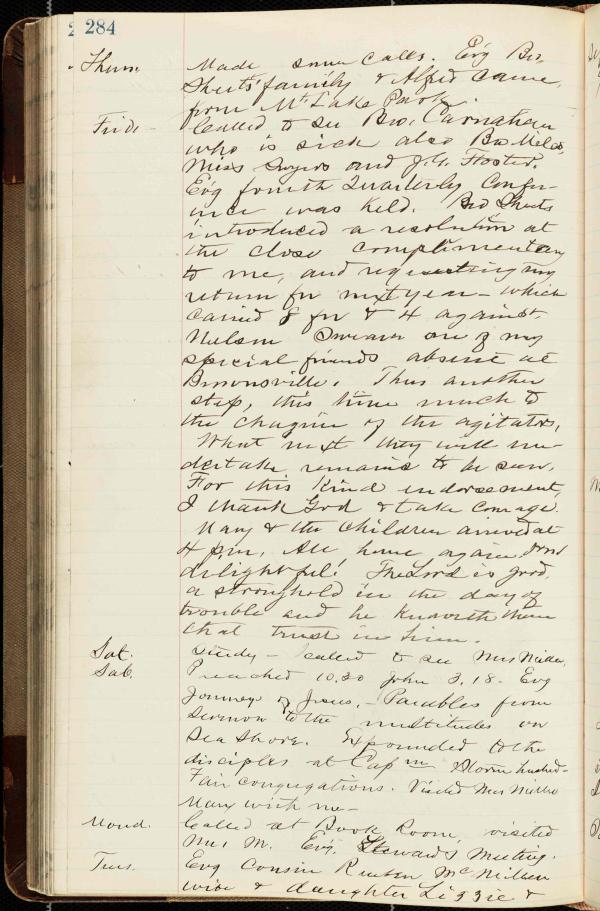 284
Thurs. Made some calls. Ev'g Bro.
Sheets' family & Alfred came
from Mt Lake Park.
Frid - Called to see Bro. Carnahan
who is sick also Bro
Miss and J. H. Foster.
Ev'g fourth Quarterly Confer-
ence was held. Bro Sheets
introduced a resolution at
the close complimentary
to me, and requesting my
return for next year - which
carried 8 for & 4 against.
Nelson one of my
special friends absent at
Brownsville. Thus another
step, this time much to
the chagrin of the agitators.
What next they will un-
dertake remains to be seen.
For this kind endorsement,
I thank God & take courage.
Mary & the children arrived at
4 p.m. All home again and
delightful! The Lord is good,
a stronghold in the day of
trouble and he knoweth them
that trust in him.
Sat. Study - called to see Mrs
Sab. Preached 10.30 John 3.18. Evg
Journeys of Jesus. - Parables from
Sermon to the multitudes on
Sea Shore. Expounded to the
disciples at Cap'm Storm hushed -
Fair congregations. Visited Mrs
Mary with me -
Mond. Called at Book Room, visited
Mrs M. Evg. Steward's Meeting.
Tues. Evg Cousin Reuben McMillen
wife & daughter Lizzie &